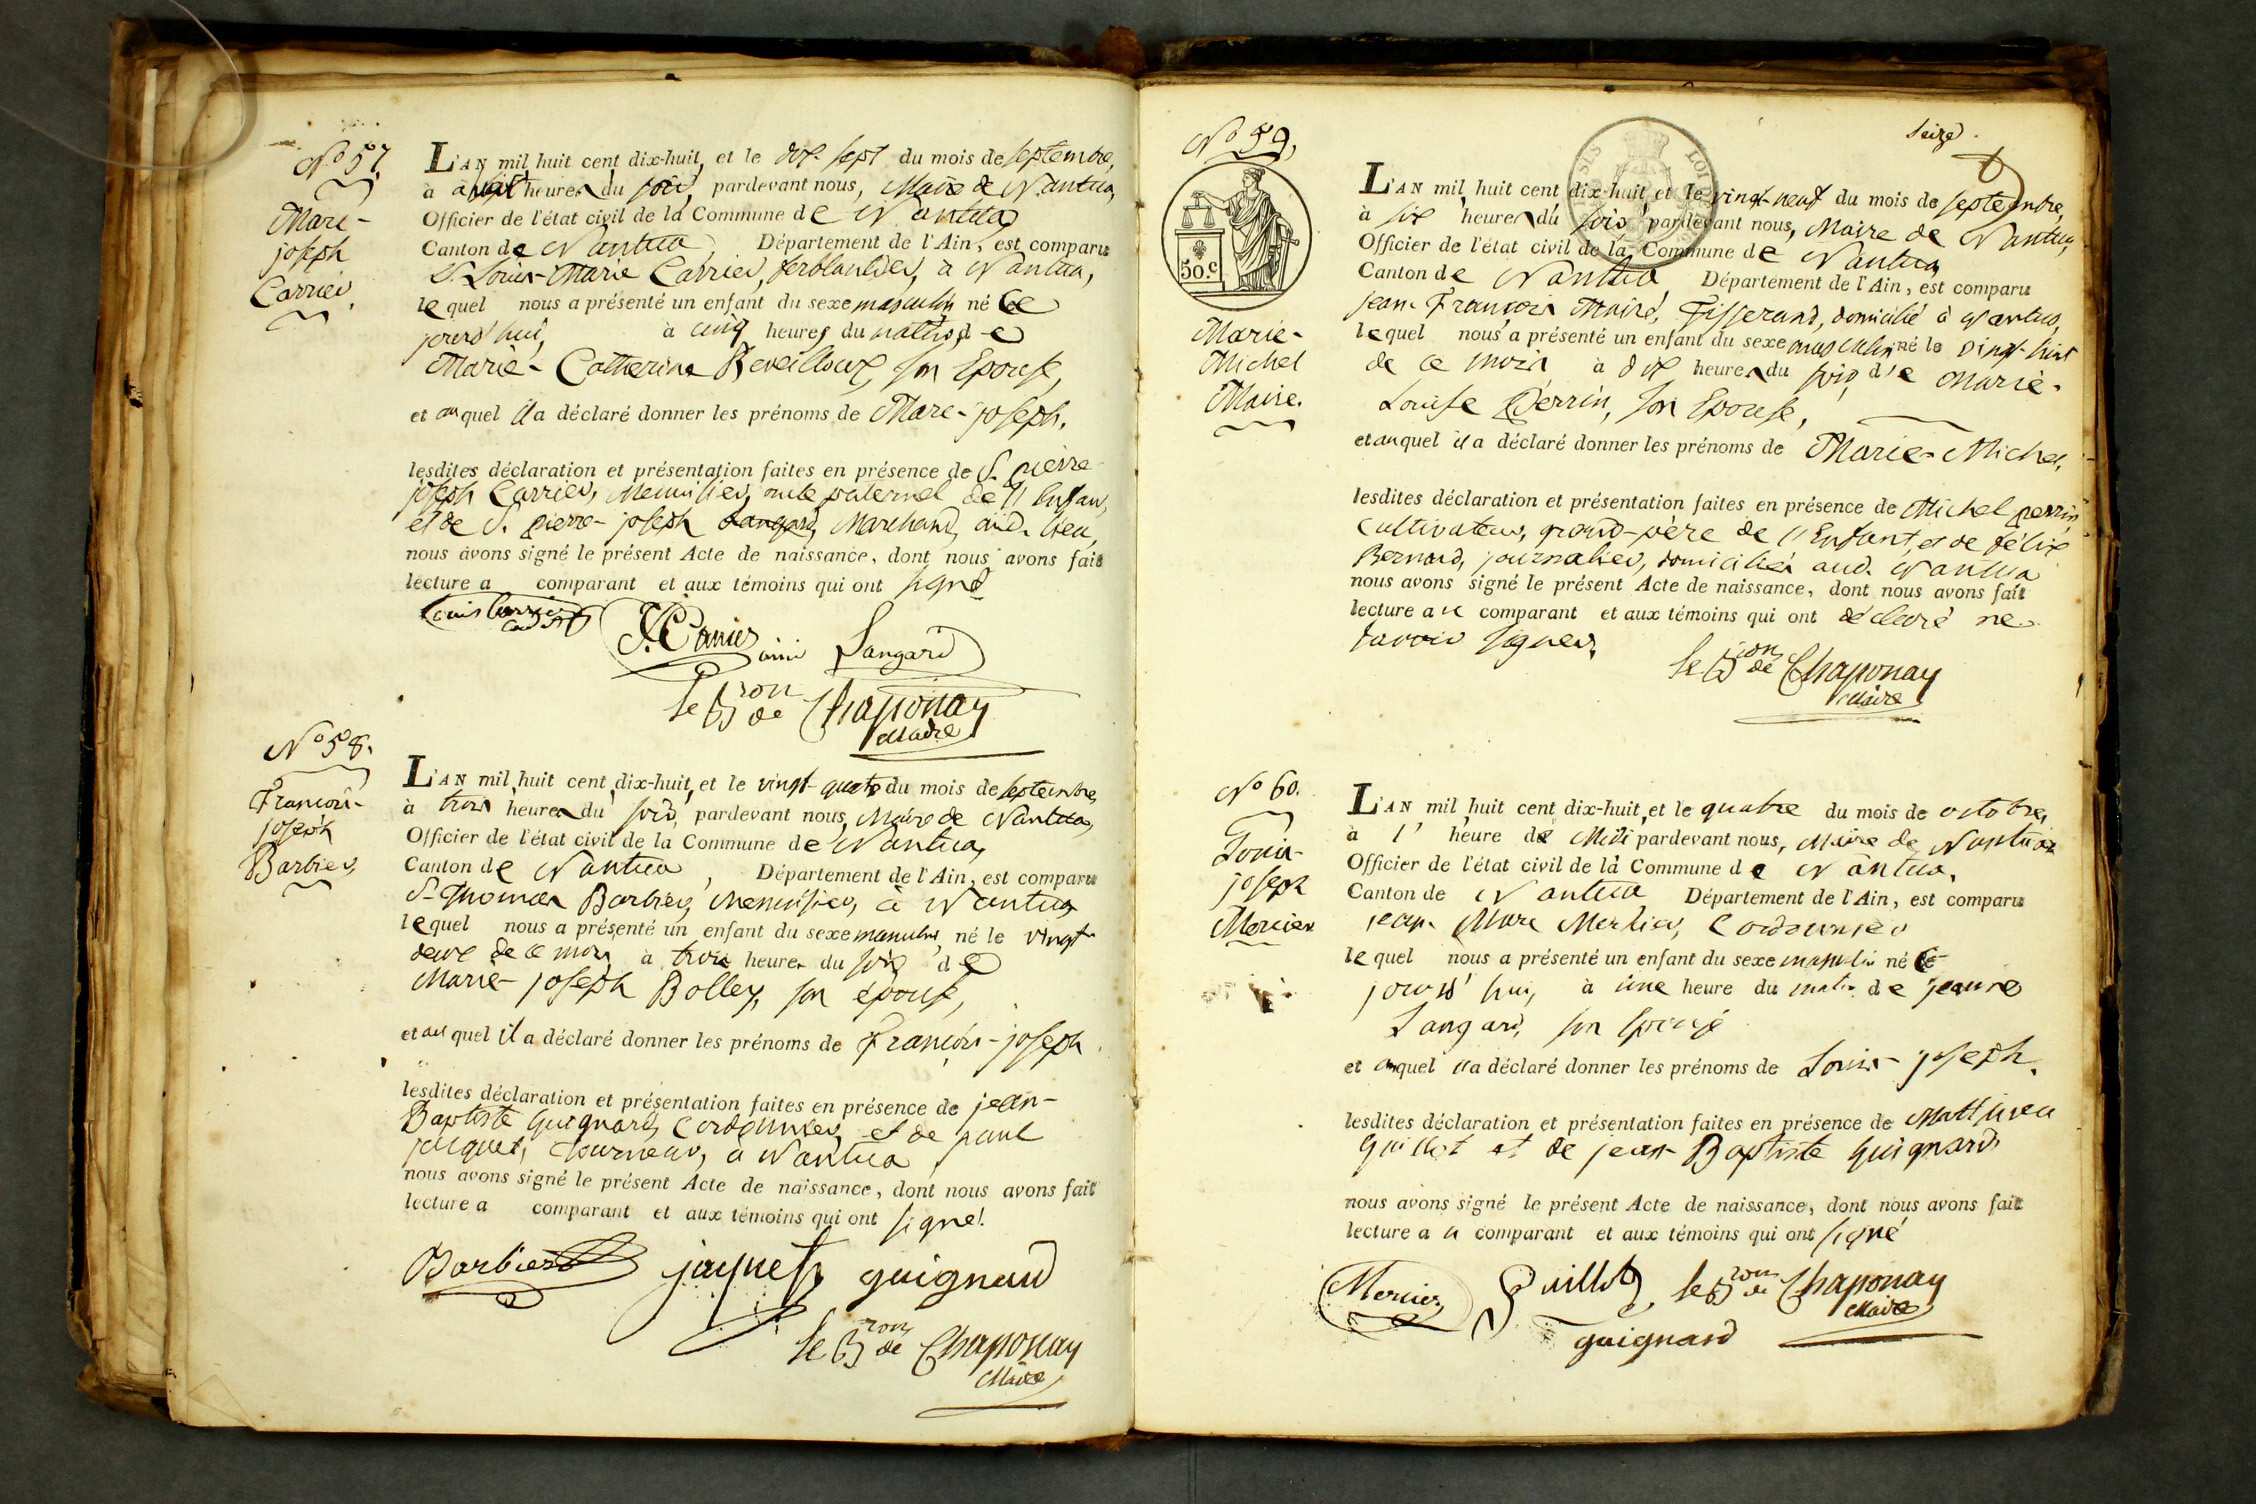 N° 57,
Marc-
joseph
Carrier.
L'AN mil huit cent dix-huit, et le dix-sept du mois de septembre,
à sept heures du soir, pardevant nous, Maire de Nantua,
Officier de l'état civil de la Commune de Nantua
Canton de Nantua Département de l'Ain, est comparu
S. Louis-Marie Carrier, ferblantier, à Nantua,
lequel nous a présenté un enfant du sexe masculin né ce
jourd'hui, à cinq heures du matin, de
Marie-Catherine Reveilloux, son Epouse,
et auquel il a déclaré donner les prénoms de Marc-joseph.
lesdites déclaration et présentation faites en présence de S. pierre
joseph Carrier, Menuisier, oncle paternel de l'Enfant,
et de S. pierre-joseph Langard, Marchand, aud. lieu,
nous avons signé le présent Acte de naissance, dont nous avons fait
lecture a comparant et aux témoins qui ont signé
Louis Carrier
cadet
J. Carrier ainé Langard
le B^ron de Chaponay
Maire
N° 58.
Francois-
joseph
Barbier,
L'AN mil huit cent dix-huit, et le vingt-quatre du mois de septembre,
à trois heures du soir, pardevant nous, Maire de Nantua,
Officier de l'état civil de la Commune de Nantua,
Canton de Nantua, Département de l'Ain, est comparu
S. Thomas Barbier, Menuisier, à Nantua
lequel nous a présenté un enfant du sexe masculin, né le vingt
deux de ce mois, à trois heures du soir de
Marie-joseph Bolley, son épouse,
et auquel il a déclaré donner les prénoms de François-joseph
lesdites déclaration et présentation faites en présence de jean-
Baptiste Guignard, Cordonnier, et de paul
jacquet, Tourneur, a Nantua
nous avons signé le présent Acte de naissance, dont nous avons fait
lecture a comparant et aux témoins qui ont signé.
Barbier jaquet guignard
le B^ron de Chaponay
Maire
Seize.
N° 59,
50.c
Marie-
Michel
Maire.
L'AN mil huit cent dix-huit, et le vingt-neuf du mois de septembre,
à six heures du soir, pardevant nous, Maire de Nantua,
Officier de l'état civil de la Commune de Nantua,
Canton de Nantua, Département de l'Ain, est comparu
jean-François Maire, Tisserand, domicilié à Nantua,
lequel nous a présenté un enfant du sexe masculin né le vingt-huit
de ce mois à dix heures du soir, de Marie-
Louise Perrin, son Epouse,
et auquel il a déclaré donner les prénoms de Marie-Michel,
lesdites déclaration et présentation faites en présence de Michel perrin
cultivateur, grand-père de l'Enfant, et de félix
Bernard, journalier, domiciliés aud. Nantua
nous avons signé le présent Acte de naissance, dont nous avons fait
lecture au comparant et aux témoins qui ont déclaré ne
savoir signer.
le B^ron de Chaponay
Maire
N° 60.
Louis-
joseph
Mercier
L'AN mil huit cent dix-huit, et le quatre du mois de octobre,
à l' heure de Midi pardevant nous, Maire de Nantua
Officier de l'état civil de la Commune de Nantua,
Canton de Nantua Département de l'Ain, est comparu
jean-Marc Mercier, Cordonnier
lequel nous a présenté un enfant du sexe masculin né ce
jourd'hui, à une heure du matin de jeanne
Langard, son Epouse
et auquel il a déclaré donner les prénoms de Louis-joseph.
lesdites déclaration et présentation faites en présence de Matthieu
Guillot et de jean-Baptiste Guignard,
nous avons signé le présent Acte de naissance, dont nous avons fait
lecture au comparant et aux témoins qui ont signé
Mercier Guillot le B^ron de Chaponay
Maire
guignard